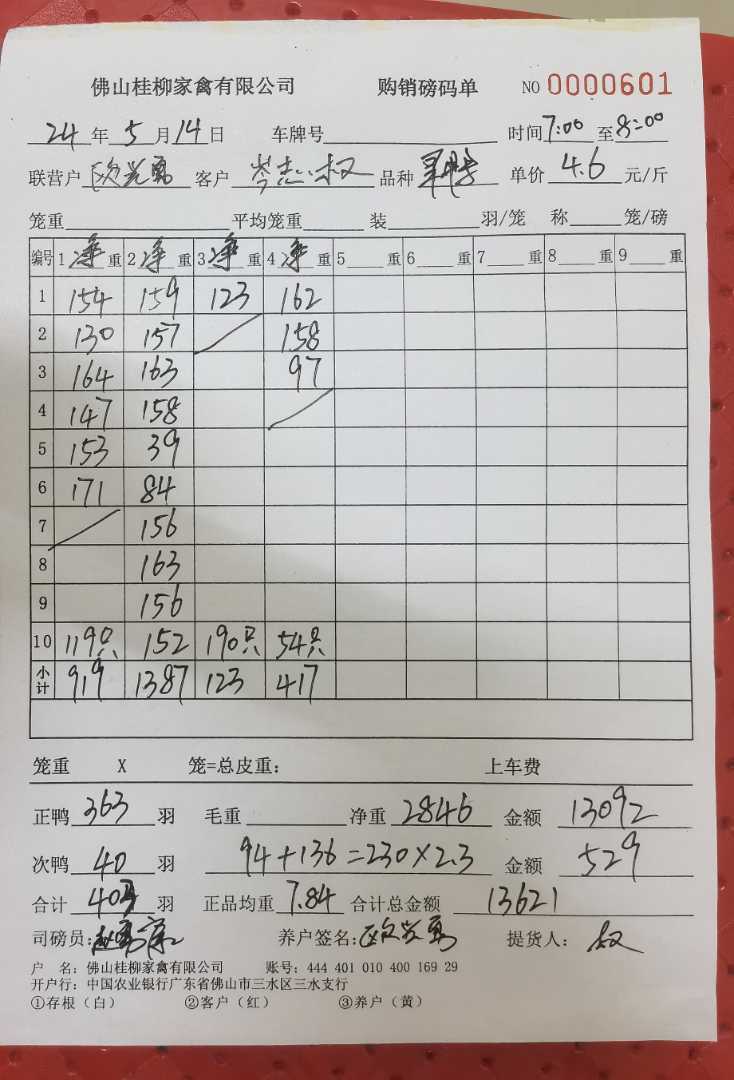 佛山桂柳家禽有限公司 购销磅码单 NO 0000601
24年5月14日 车牌号 时间7:00至8:00
联营户 欧兴勇 客户 岑志权 品种 单价 4.6 元/斤
笼重 平均笼重 装 羽/笼 称 笼/磅
编号 1净重 2净重 3净重 4净重 5重 6重 7重 8重 9重
1 154 159 123 162
2 130 157 158
3 164 163 97
4 147 158
5 153 39
6 171 84
7 156
8 163
9 156
10 119只 152 190只 54只
小计 919 1387 123 417
笼重 X 笼=总皮重: 上车费
正鸭 363 羽 毛重 净重 2846 金额 13092
次鸭 40 羽 94+136=230×2.3 金额 529
合计 403 羽 正品均重 7.84 合计总金额 13621
司磅员: 养户签名:欧兴勇 提货人: 权
户 名:佛山桂柳家禽有限公司 账号:444 401 010 400 169 29
开户行:中国农业银行广东省佛山市三水区三水支行
①存根(白) ②客户(红) ③养户(黄)